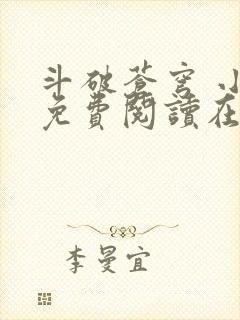 斗破苍穹 小
免費閱讀在
李曼宜